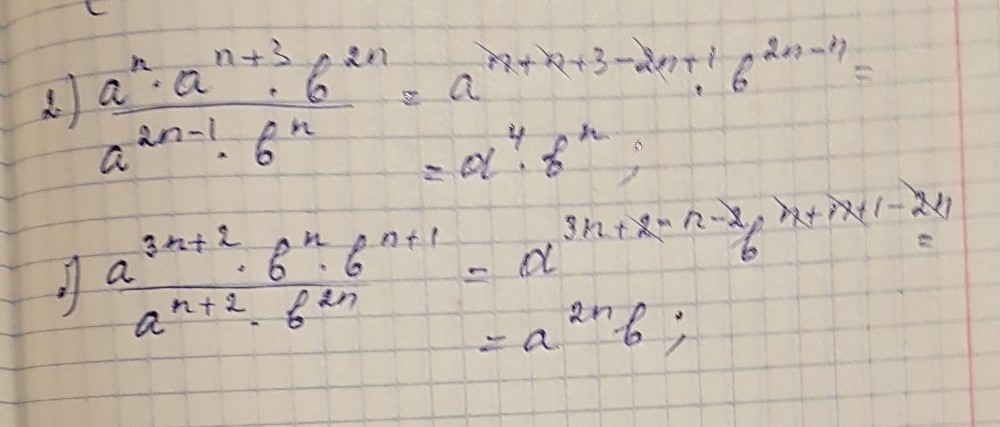 2) (aⁿ · aⁿ⁺³ · в²ⁿ) / (a²ⁿ⁻¹ · вⁿ) = aⁿ⁺ⁿ⁺³⁻²ⁿ⁺¹ · в²ⁿ⁻ⁿ =
= a⁴ · вⁿ ;
(a³ⁿ⁺² · вⁿ · вⁿ⁺¹) / (aⁿ⁺² · в²ⁿ) = a³ⁿ⁺²⁻ⁿ⁻² вⁿ⁺ⁿ⁺¹⁻²ⁿ =
= a²ⁿ в ;